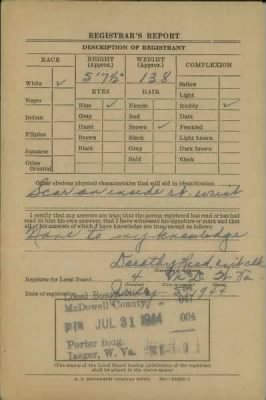 REGISTRAR'S REPORT
DESCRIPTION OF REGISTRANT
RACE HEIGHT (Approx.) WEIGHT (Approx.) COMPLEXION
5' 7½" 138
White ✓ Sallow
EYES HAIR Light
Negro Blue ✓ Blonde Ruddy ✓
Indian Gray Red Dark
Hazel Brown ✓ Freckled
Filipino Brown Black Light brown
Japanese Black Gray Dark brown
Other Oriental Bald Black
Other obvious physical characteristics that will aid in identification
Scar on inside rt. wrist
I certify that my answers are true; that the person registered has read or has had
read to him his own answers; that I have witnessed his signature or mark and that
all of his answers of which I have knowledge are true, except as follows:
None to my knowledge
Dorothy
Registrar for Local Board 4
Date of registration 1944
Local Board
McDowell County
JUL 31 1944 004
Porter Bldg.
Iaeger, W. Va.
(The stamp of the Local Board having jurisdiction of the registrant
shall be placed in the above space)
U. S. GOVERNMENT PRINTING OFFICE